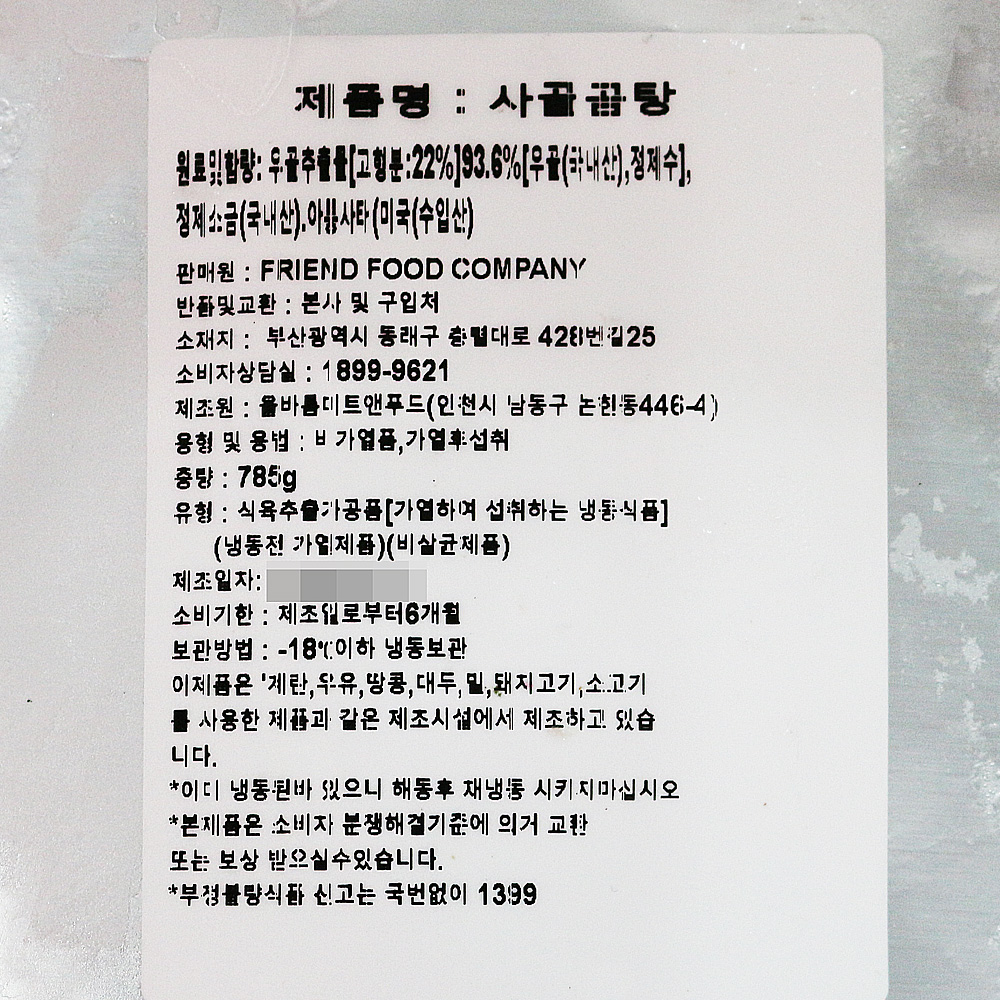 제품명 : 사골곰탕
원료및함량: 우골추출물[고형분:22%]93.6%[우골(국내산),정제수],
정제소금(국내산).아황사타(미국(수입산)
판매원 : FRIEND FOOD COMPANY
반품및교환 : 본사 및 구입처
소재지 : 부산광역시 동래구 충렬대로 428번길25
소비자상담실 : 1899-9621
제조원 : 올바름미트앤푸드(인천시 남동구 논현동446-4)
용형 및 용법 : 비 가열품,가열후섭취
중량 : 785g
유형 : 식육추출가공품[가열하여 섭취하는 냉동식품]
(냉동전 가열제품)(비살균제품)
제조일자:
소비기한 : 제조일로부터6개월
보관방법 : -18℃이하 냉동보관
이제품은 '계란,우유,땅콩,대두,밀,돼지고기,소고기
를 사용한 제품과 같은 제조시설에서 제조하고 있습
니다.
*이미 냉동된바 있으니 해동후 재냉동 시키지마십시오
*본제품은 소비자 분쟁해결기준에 의거 교환
또는 보상 받으실수있습니다.
*부정불량식품 신고는 국번없이 1399